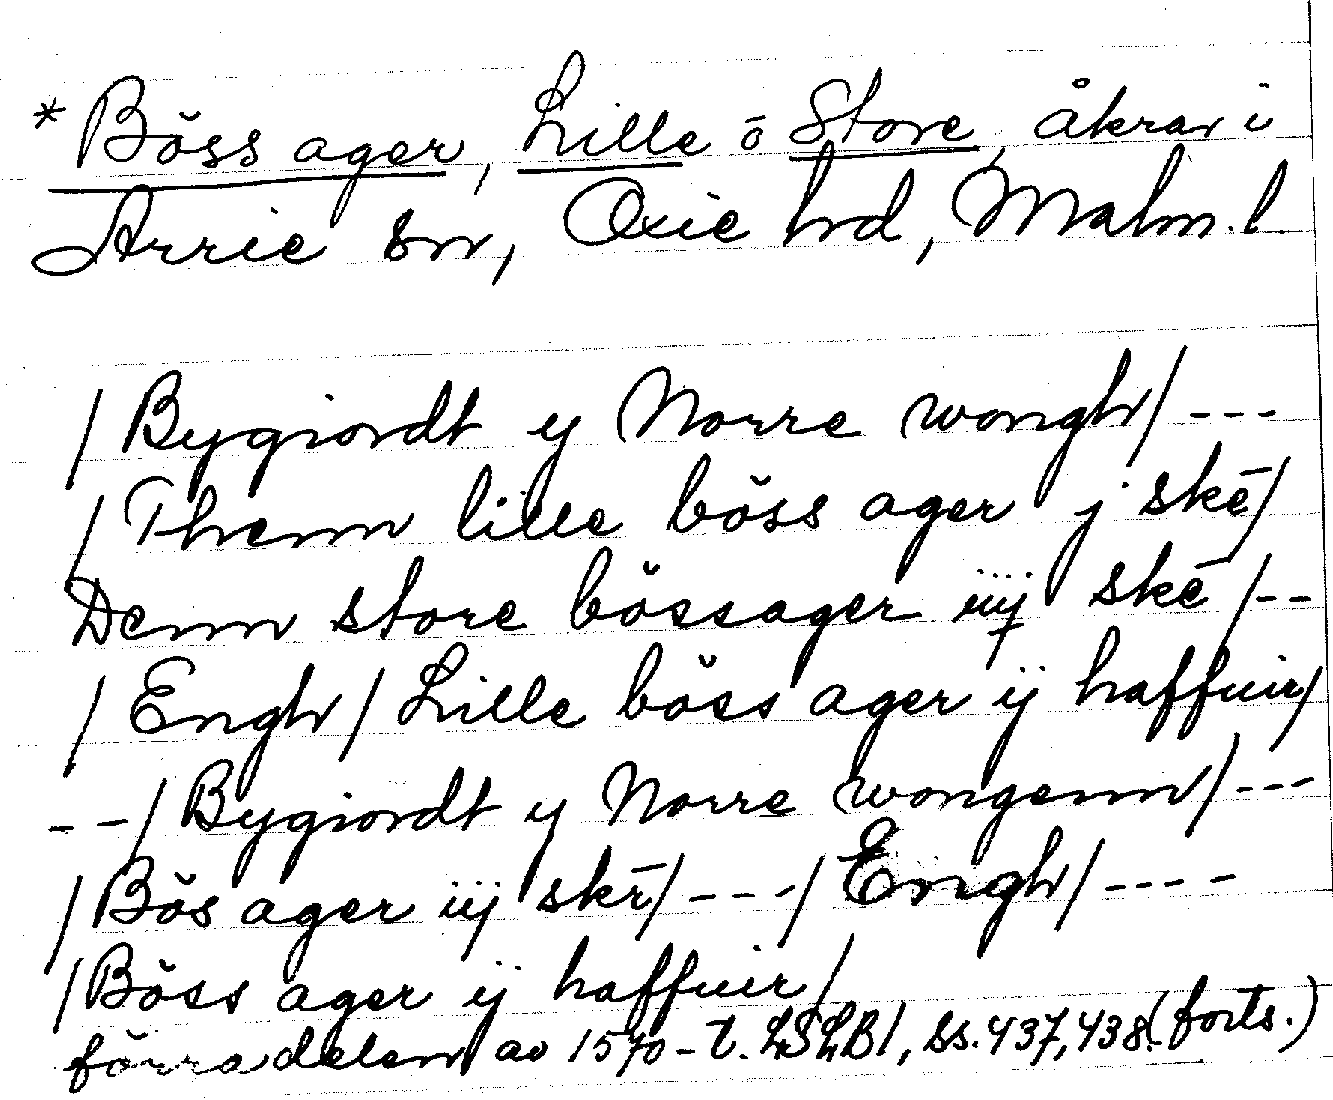 *Böss ager, Lille o Store, åkrar i
Arrie sn, Oxie hrd, Malm. l.
/Bygiordt y Norre wongh/---
/Thenn lille böss ager j skē/
Denn store bössager iiij skē/--
/Engh/Lille böss ager ij haffuir/
--/Bygiordt y Norre wongenn/---
/Bös ager iij skē/---/Engh/----
/Böss ager ij haffuir/
förra delen av 1570-t. LSLB1, ss. 437, 438. (forts.)